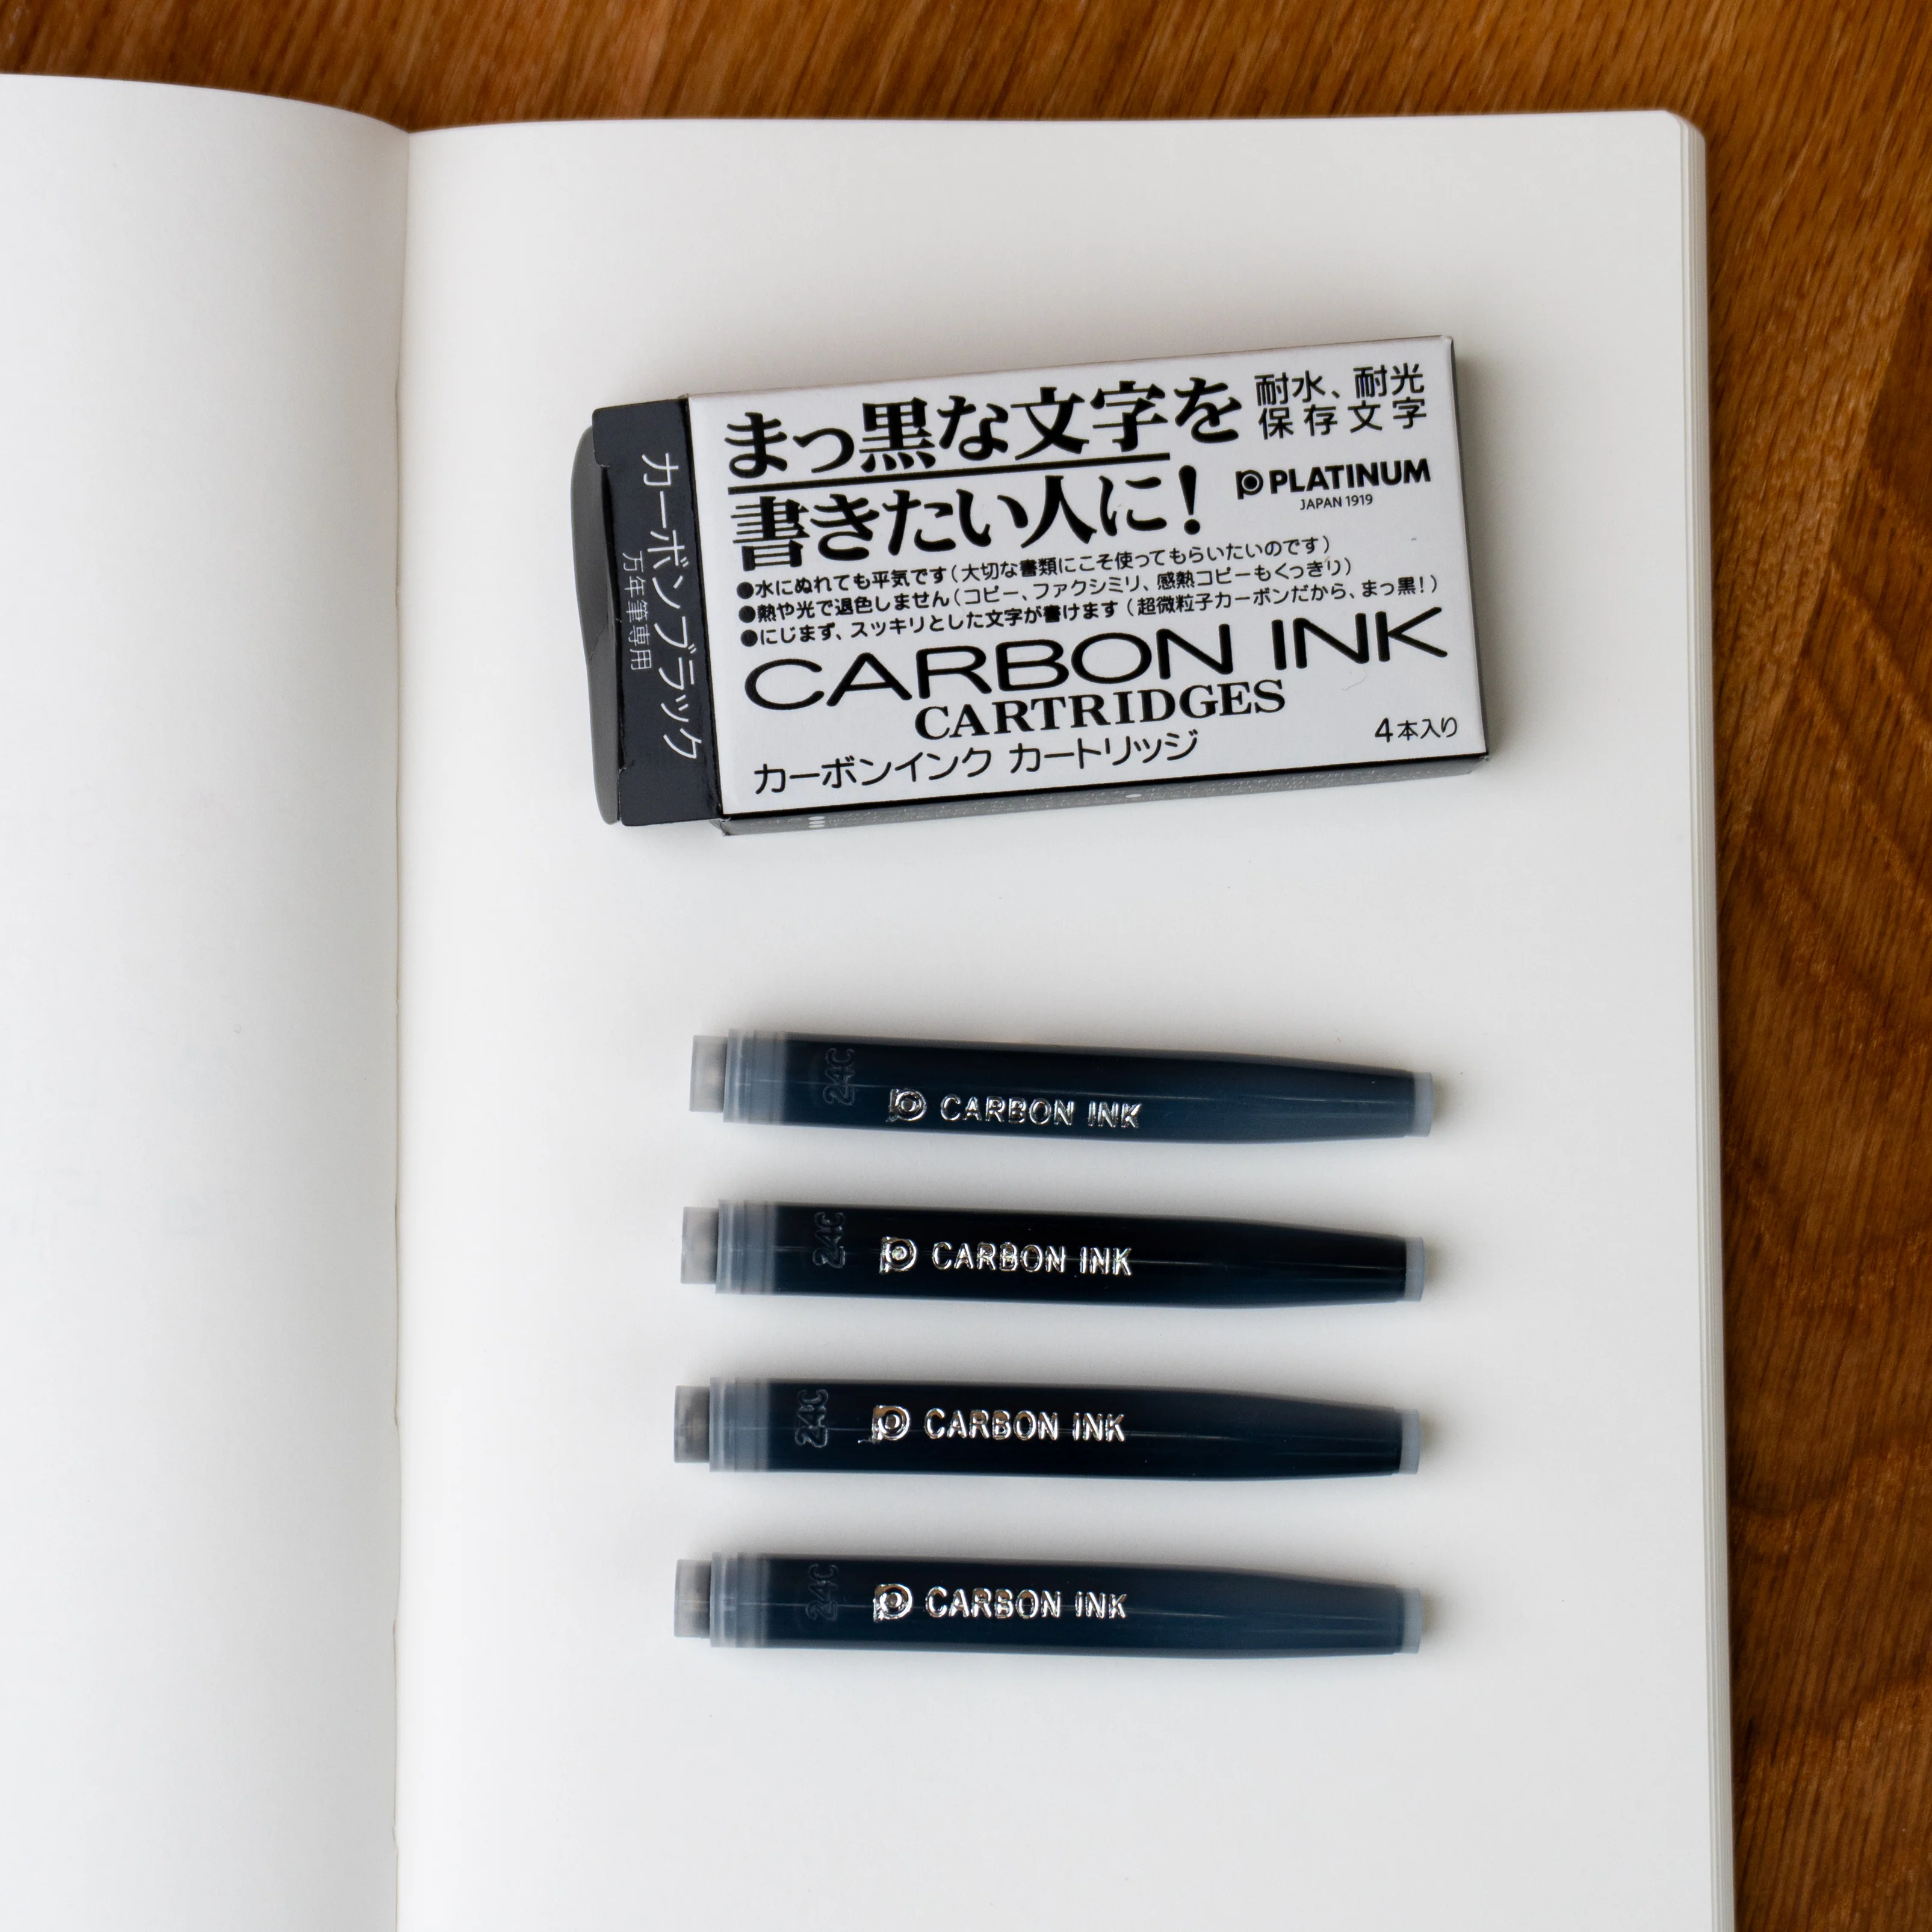 まっ黒な文字を
書きたい人に!
耐水、耐光
保存文字
PLATINUM
JAPAN 1919
●水にぬれても平気です(大切な書類にこそ使ってもらいたいのです)
●熱や光で退色しません(コピー、ファクシミリ、感熱コピーもくっきり)
●にじまず、スッキリとした文字が書けます(超微粒子カーボンだから、まっ黒!)
CARBON INK
CARTRIDGES
カーボンインク カートリッジ
4本入り
カーボンブラック
万年筆専用
24C
CARBON INK
24C
CARBON INK
24C
CARBON INK
24C
CARBON INK